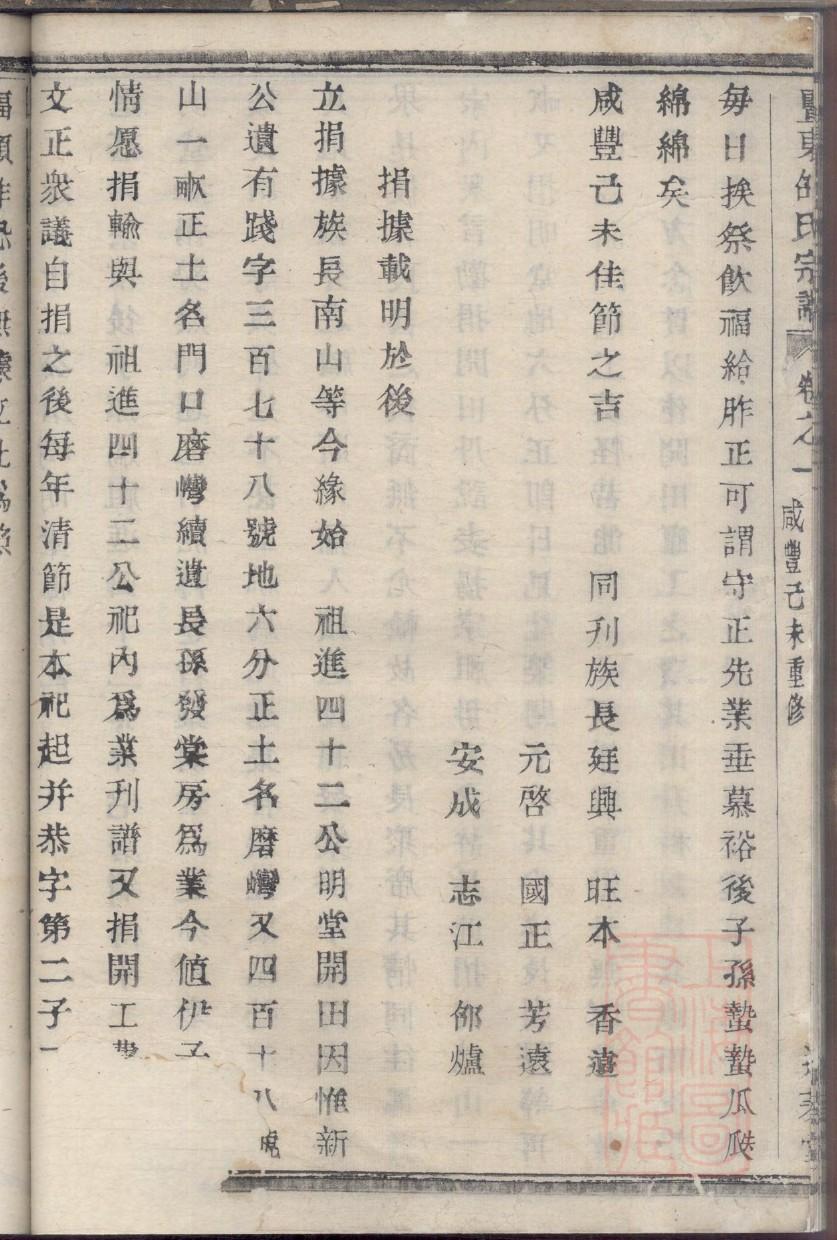 暨東邵氏宗譜 卷之一 咸豐己未重修
每日挨祭飲福給胙正可謂守正先業垂慕裕後子孫蟄蟄瓜瓞
綿綿矣
咸豐己未佳節之吉 同刋族長廷興 旺本 香遠
元啓 國正 芳遠
安成 志江 邵爐
捐據載明於後
立捐據族長南山等今緣始 祖進四十二公明堂開田因惟新
公遺有踐字三百七十八號地六分正土名磨彎又四百十八號
山一畝正土名門口磨彎續遺長孫發棠房爲業今値伊子
情愿捐輸與 祖進四十二公祀内爲業刋譜又捐開工費
文正衆議自捐之後每年清節是本祀起并恭字第二子